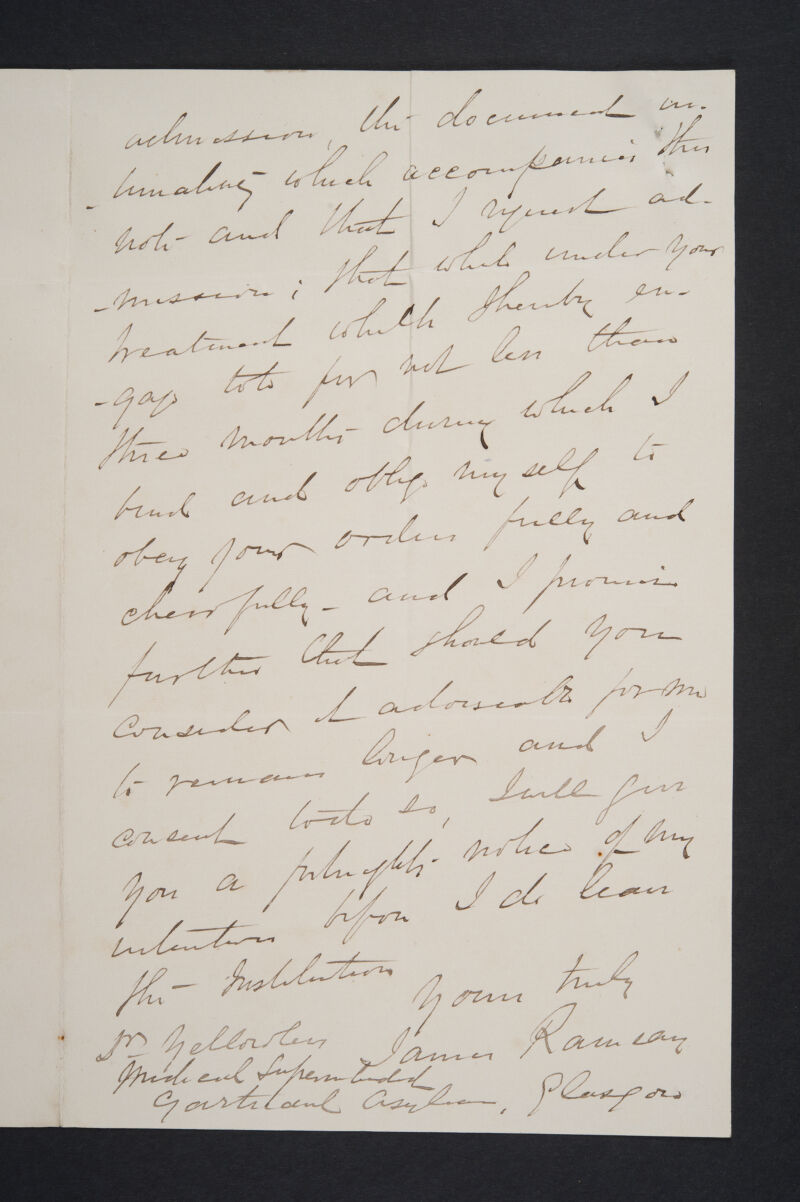 admission, the document in-
-timating which accompanies this
note and that I request ad-
-mission; that while under your
treatment which I hereby en-
-gage to do for not less than
three months during which I
bind and oblige myself to
obey your orders fully and
cheerfully - and I promise
further that should you
consider it adviseable for me
to remain longer and I
consent to do so, I will give
you a fortnights notice of my
intention before I do leave
the Institution
Yours truly
James Ramsay
Dr Yellowlees
Medical Superintendent
Gartnavel Asylum, Glasgow